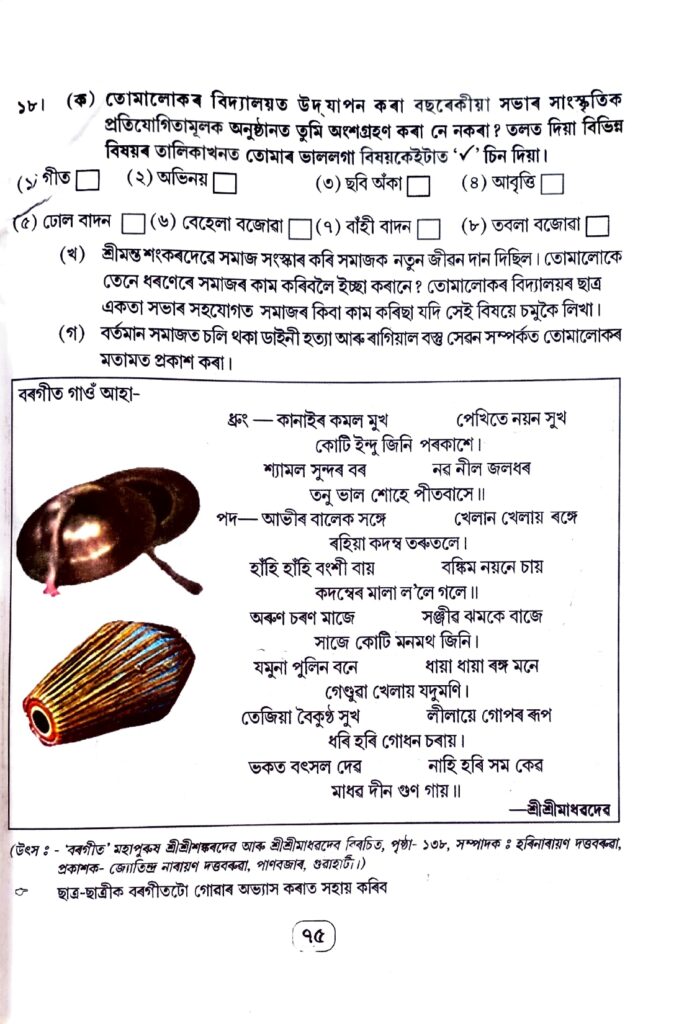 ১৮। (ক) তোমালোকৰ বিদ্যালয়ত উদ্‌যাপন কৰা বছৰেকীয়া সভাৰ সাংস্কৃতিক
প্ৰতিযোগিতামূলক অনুষ্ঠানত তুমি অংশগ্ৰহণ কৰা নে নকৰা? তলত দিয়া বিভিন্ন
বিষয়ৰ তালিকাখনত তোমাৰ ভাললগা বিষয়কেইটাত ‘✓’ চিন দিয়া।
(১) গীত (২) অভিনয় (৩) ছবি অঁকা (৪) আবৃত্তি
(৫) ঢোল বাদন (৬) বেহেলা বজোৱা (৭) বাঁহী বাদন (৮) তবলা বজোৱা
(খ) শ্ৰীমন্ত শংকৰদেৱে সমাজ সংস্কাৰ কৰি সমাজক নতুন জীৱন দান দিছিল। তোমালোকে
তেনে ধৰণেৰে সমাজৰ কাম কৰিবলৈ ইচ্ছা কৰানে? তোমালোকৰ বিদ্যালয়ৰ ছাত্ৰ
একতা সভাৰ সহযোগত সমাজৰ কিবা কাম কৰিছা যদি সেই বিষয়ে চমুকৈ লিখা।
(গ) বৰ্তমান সমাজত চলি থকা ডাইনী হত্যা আৰু ৰাগিয়াল বস্তু সেৱন সম্পৰ্কত তোমালোকৰ
মতামত প্ৰকাশ কৰা।
বৰগীত গাওঁ আহা-
ধ্ৰুং — কানাইৰ কমল মুখ পেখিতে নয়ন সুখ
কোটি ইন্দু জিনি পৰকাশে।
শ্যামল সুন্দৰ বৰ নৱ নীল জলধৰ
তনু ভাল শোহে পীতবাসে॥
পদ— আভীৰ বালেক সঙ্গে খেলান খেলায় ৰঙ্গে
ৰহিয়া কদম্ব তৰুতলে।
হাঁহি হাঁহি বংশী বায় বঙ্কিম নয়নে চায়
কদম্বেৰ মালা ল’লে গলে॥
অৰুণ চৰণ মাজে সঞ্জীৱ ঝমকে বাজে
সাজে কোটি মনমথ জিনি।
যমুনা পুলিন বনে ধায়া ধায়া ৰঙ্গ মনে
গেণ্ডুৱা খেলায় যদুমণি।
তেজিয়া বৈকুণ্ঠ সুখ লীলায়ে গোপৰ ৰূপ
ধৰি হৰি গোধন চৰায়।
ভকত বৎসল দেৱ নাহি হৰি সম কেৱ
মাধৱ দীন গুণ গায়॥
—শ্ৰীশ্ৰীমাধৱদেৱ
(উৎস : - ‘বৰগীত’ মহাপুৰুষ শ্ৰীশ্ৰীশঙ্কৰদেৱ আৰু শ্ৰীশ্ৰীমাধৱদেৱ বিৰচিত, পৃষ্ঠা- ১৩৮, সম্পাদক : হৰিনাৰায়ণ দত্তবৰুৱা,
প্ৰকাশক- জ্যোতিন্দ্ৰ নাৰায়ণ দত্তবৰুৱা, পাণবজাৰ, গুৱাহাটী।)
☞ ছাত্ৰ-ছাত্ৰীক বৰগীতটো গোৱাৰ অভ্যাস কৰাত সহায় কৰিব
৭৫